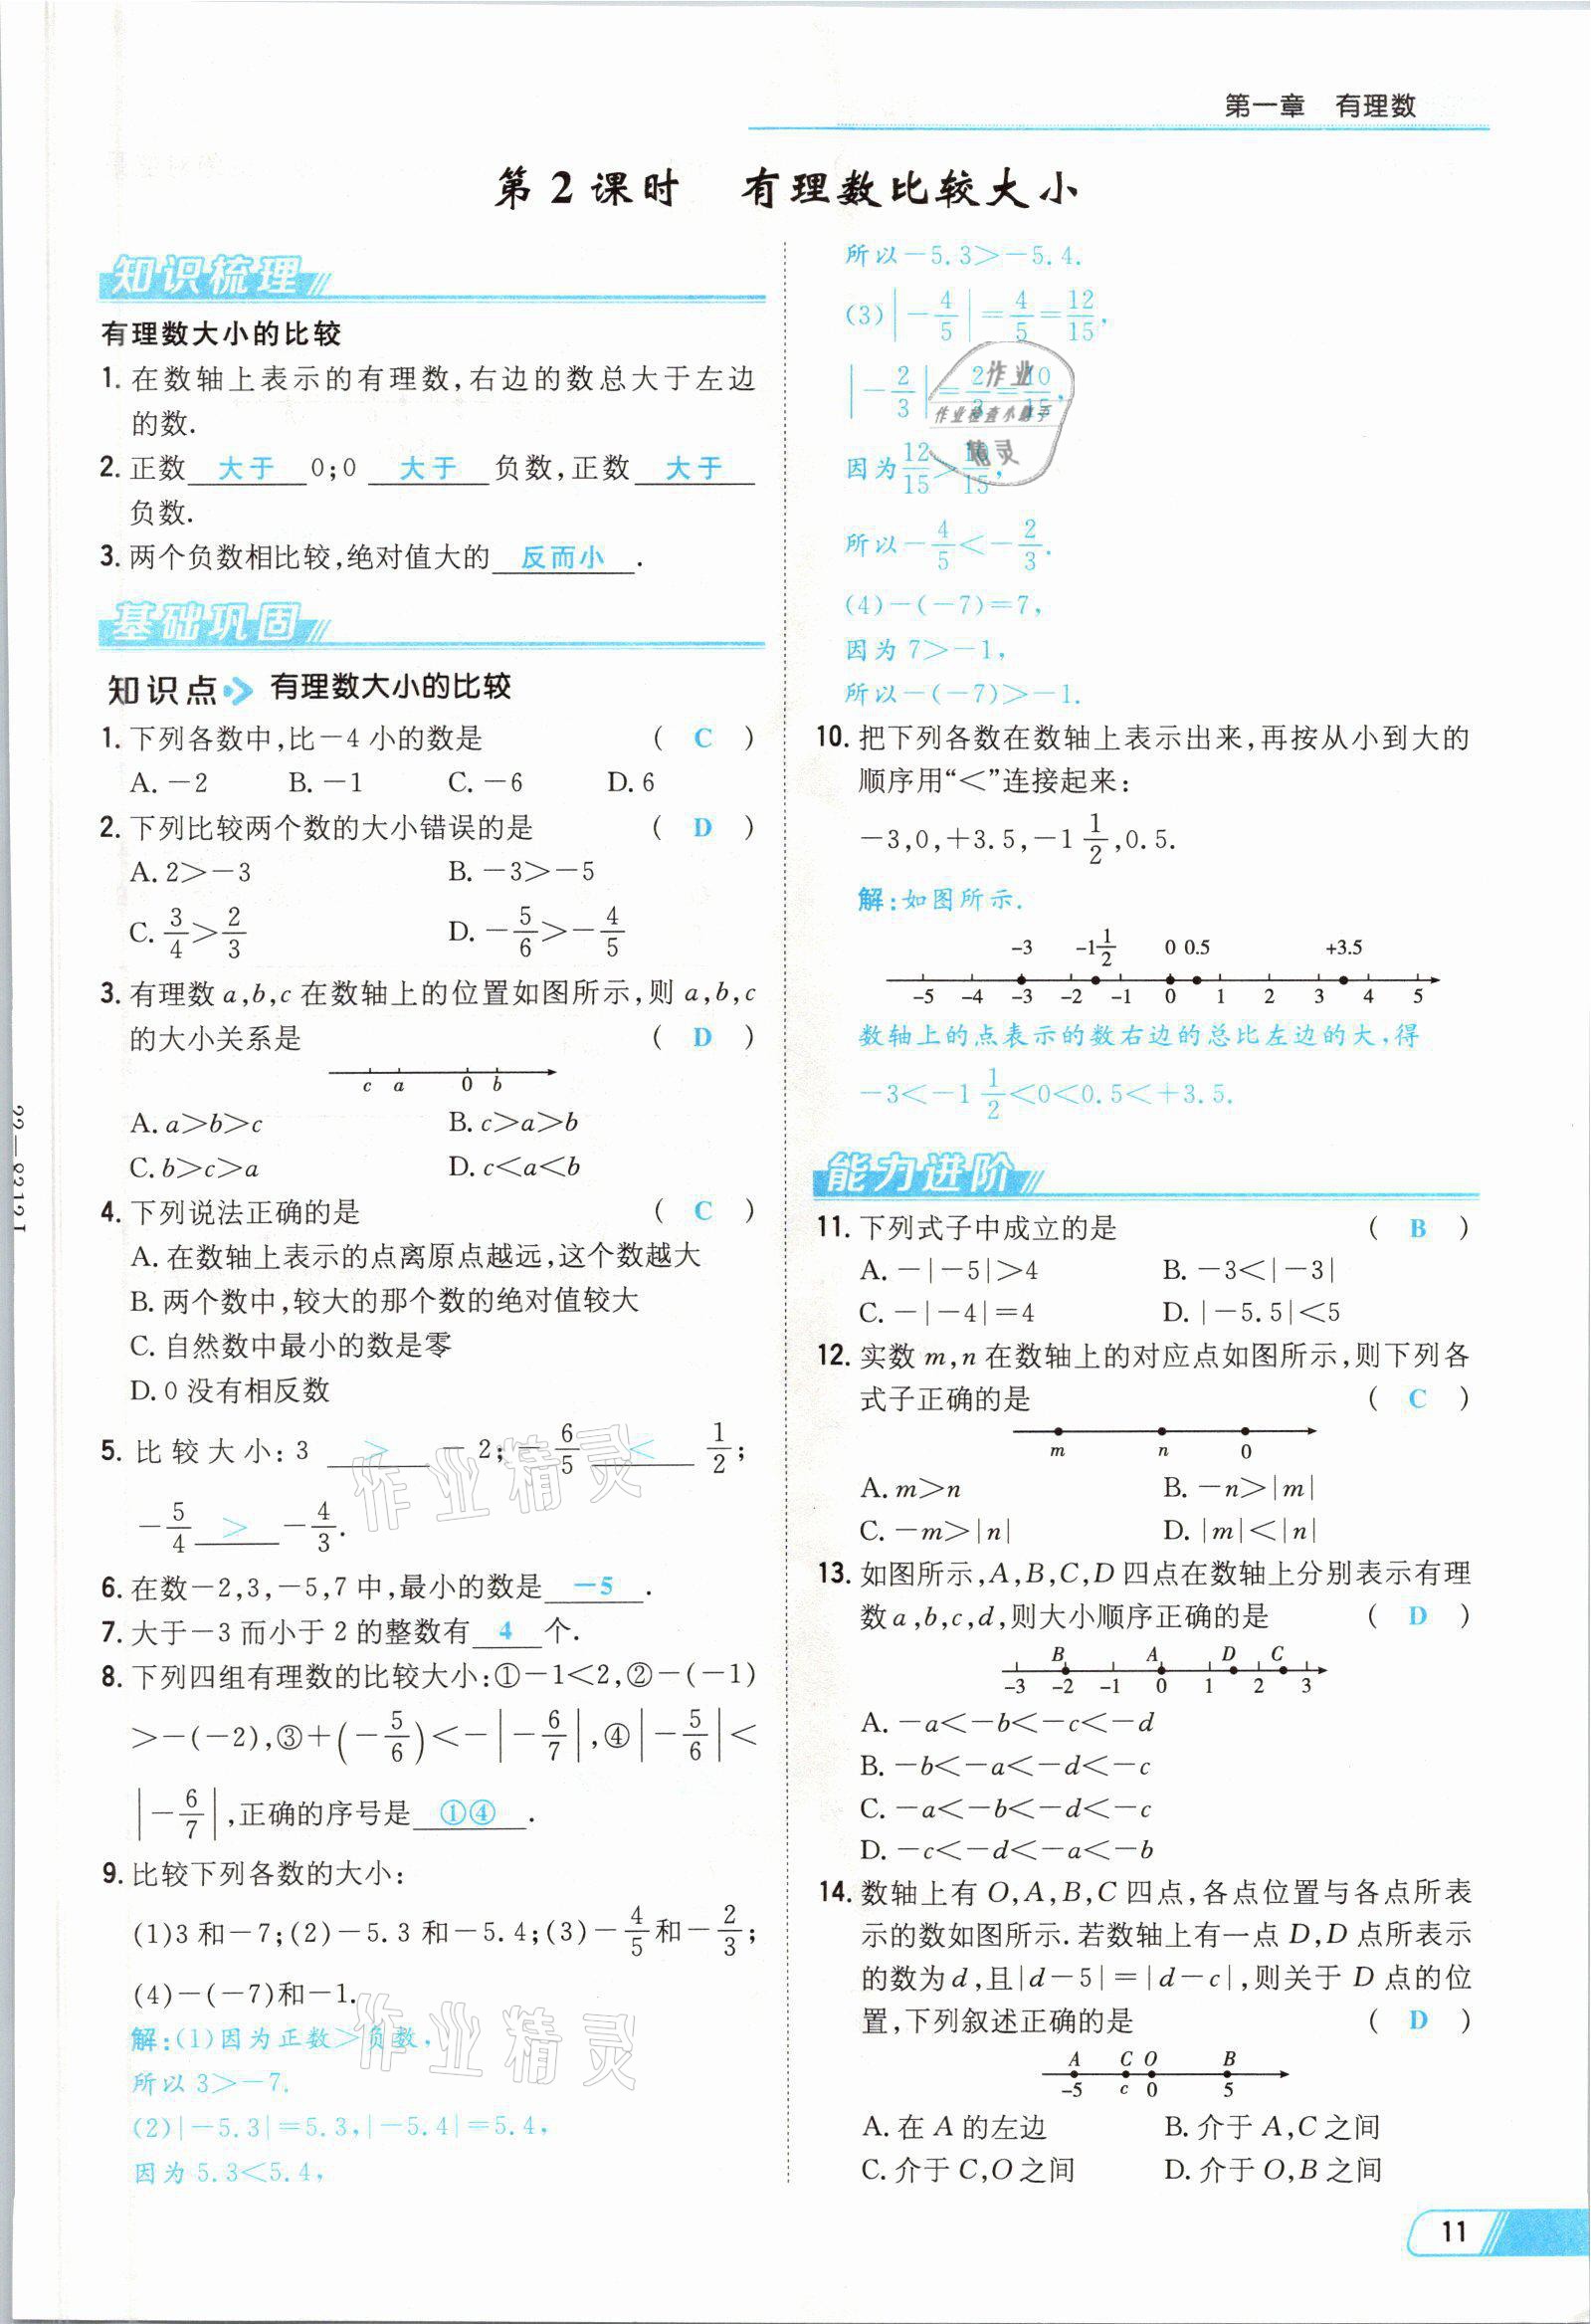 第一章 有理数
第2课时 有理数比较大小
知识梳理
有理数大小的比较
1. 在数轴上表示的有理数,右边的数总大于左边
的数.
2. 正数 大于 0;0 大于 负数,正数 大于
负数.
3. 两个负数相比较,绝对值大的 反而小 .
基础巩固
知识点 有理数大小的比较
1. 下列各数中,比-4小的数是 ( C )
A. -2 B. -1 C. -6 D. 6
2. 下列比较两个数的大小错误的是 ( D )
A. 2>-3 B. -3>-5
C. 3/4>2/3 D. -5/6>-4/5
3. 有理数a,b,c在数轴上的位置如图所示,则a,b,c
的大小关系是 ( D )
c a 0 b
A. a>b>c B. c>a>b
C. b>c>a D. c<a<b
4. 下列说法正确的是 ( C )
A. 在数轴上表示的点离原点越远,这个数越大
B. 两个数中,较大的那个数的绝对值较大
C. 自然数中最小的数是零
D. 0没有相反数
5. 比较大小: 3 > -2; -6/5 < 1/2;
-5/4 > -4/3.
6. 在数-2,3,-5,7中,最小的数是 -5 .
7. 大于-3而小于2的整数有 4 个.
8. 下列四组有理数的比较大小:①-1<2,②-(-1)
>-(-2),③+(-5/6)<-|-6/7|,④|-5/6|<
|-6/7|,正确的序号是 ①④ .
9. 比较下列各数的大小:
(1)3和-7;(2)-5.3和-5.4;(3)-4/5和-2/3;
(4)-(-7)和-1.
解:(1)因为正数>负数,
所以3>-7.
(2)|-5.3|=5.3,|-5.4|=5.4,
因为5.3<5.4,
所以-5.3>-5.4.
(3)|-4/5|=4/5=12/15,
|-2/3|=2/3=10/15,
因为12/15>10/15,
所以-4/5<-2/3.
(4)-(-7)=7,
因为7>-1,
所以-(-7)>-1.
10. 把下列各数在数轴上表示出来,再按从小到大的
顺序用“<”连接起来:
-3,0,+3.5,-1 1/2,0.5.
解:如图所示.
-3 -1 1/2 0 0.5 +3.5
-5 -4 -3 -2 -1 0 1 2 3 4 5
数轴上的点表示的数右边的总比左边的大,得
-3<-1 1/2<0<0.5<+3.5.
能力进阶
11. 下列式子中成立的是 ( B )
A. -|-5|>4 B. -3<|-3|
C. -|-4|=4 D. |-5.5|<5
12. 实数m,n在数轴上的对应点如图所示,则下列各
式子正确的是 ( C )
m n 0
A. m>n B. -n>|m|
C. -m>|n| D. |m|<|n|
13. 如图所示,A,B,C,D四点在数轴上分别表示有理
数a,b,c,d,则大小顺序正确的是 ( D )
B A D C
-3 -2 -1 0 1 2 3
A. -a<-b<-c<-d
B. -b<-a<-d<-c
C. -a<-b<-d<-c
D. -c<-d<-a<-b
14. 数轴上有O,A,B,C四点,各点位置与各点所表
示的数如图所示.若数轴上有一点D,D点所表示
的数为d,且|d-5|=|d-c|,则关于D点的位
置,下列叙述正确的是 ( D )
A C O B
-5 c 0 5
A. 在A的左边 B. 介于A,C之间
C. 介于C,O之间 D. 介于O,B之间
11
作业
作业检查小助手
精灵
作业精灵
作业精灵